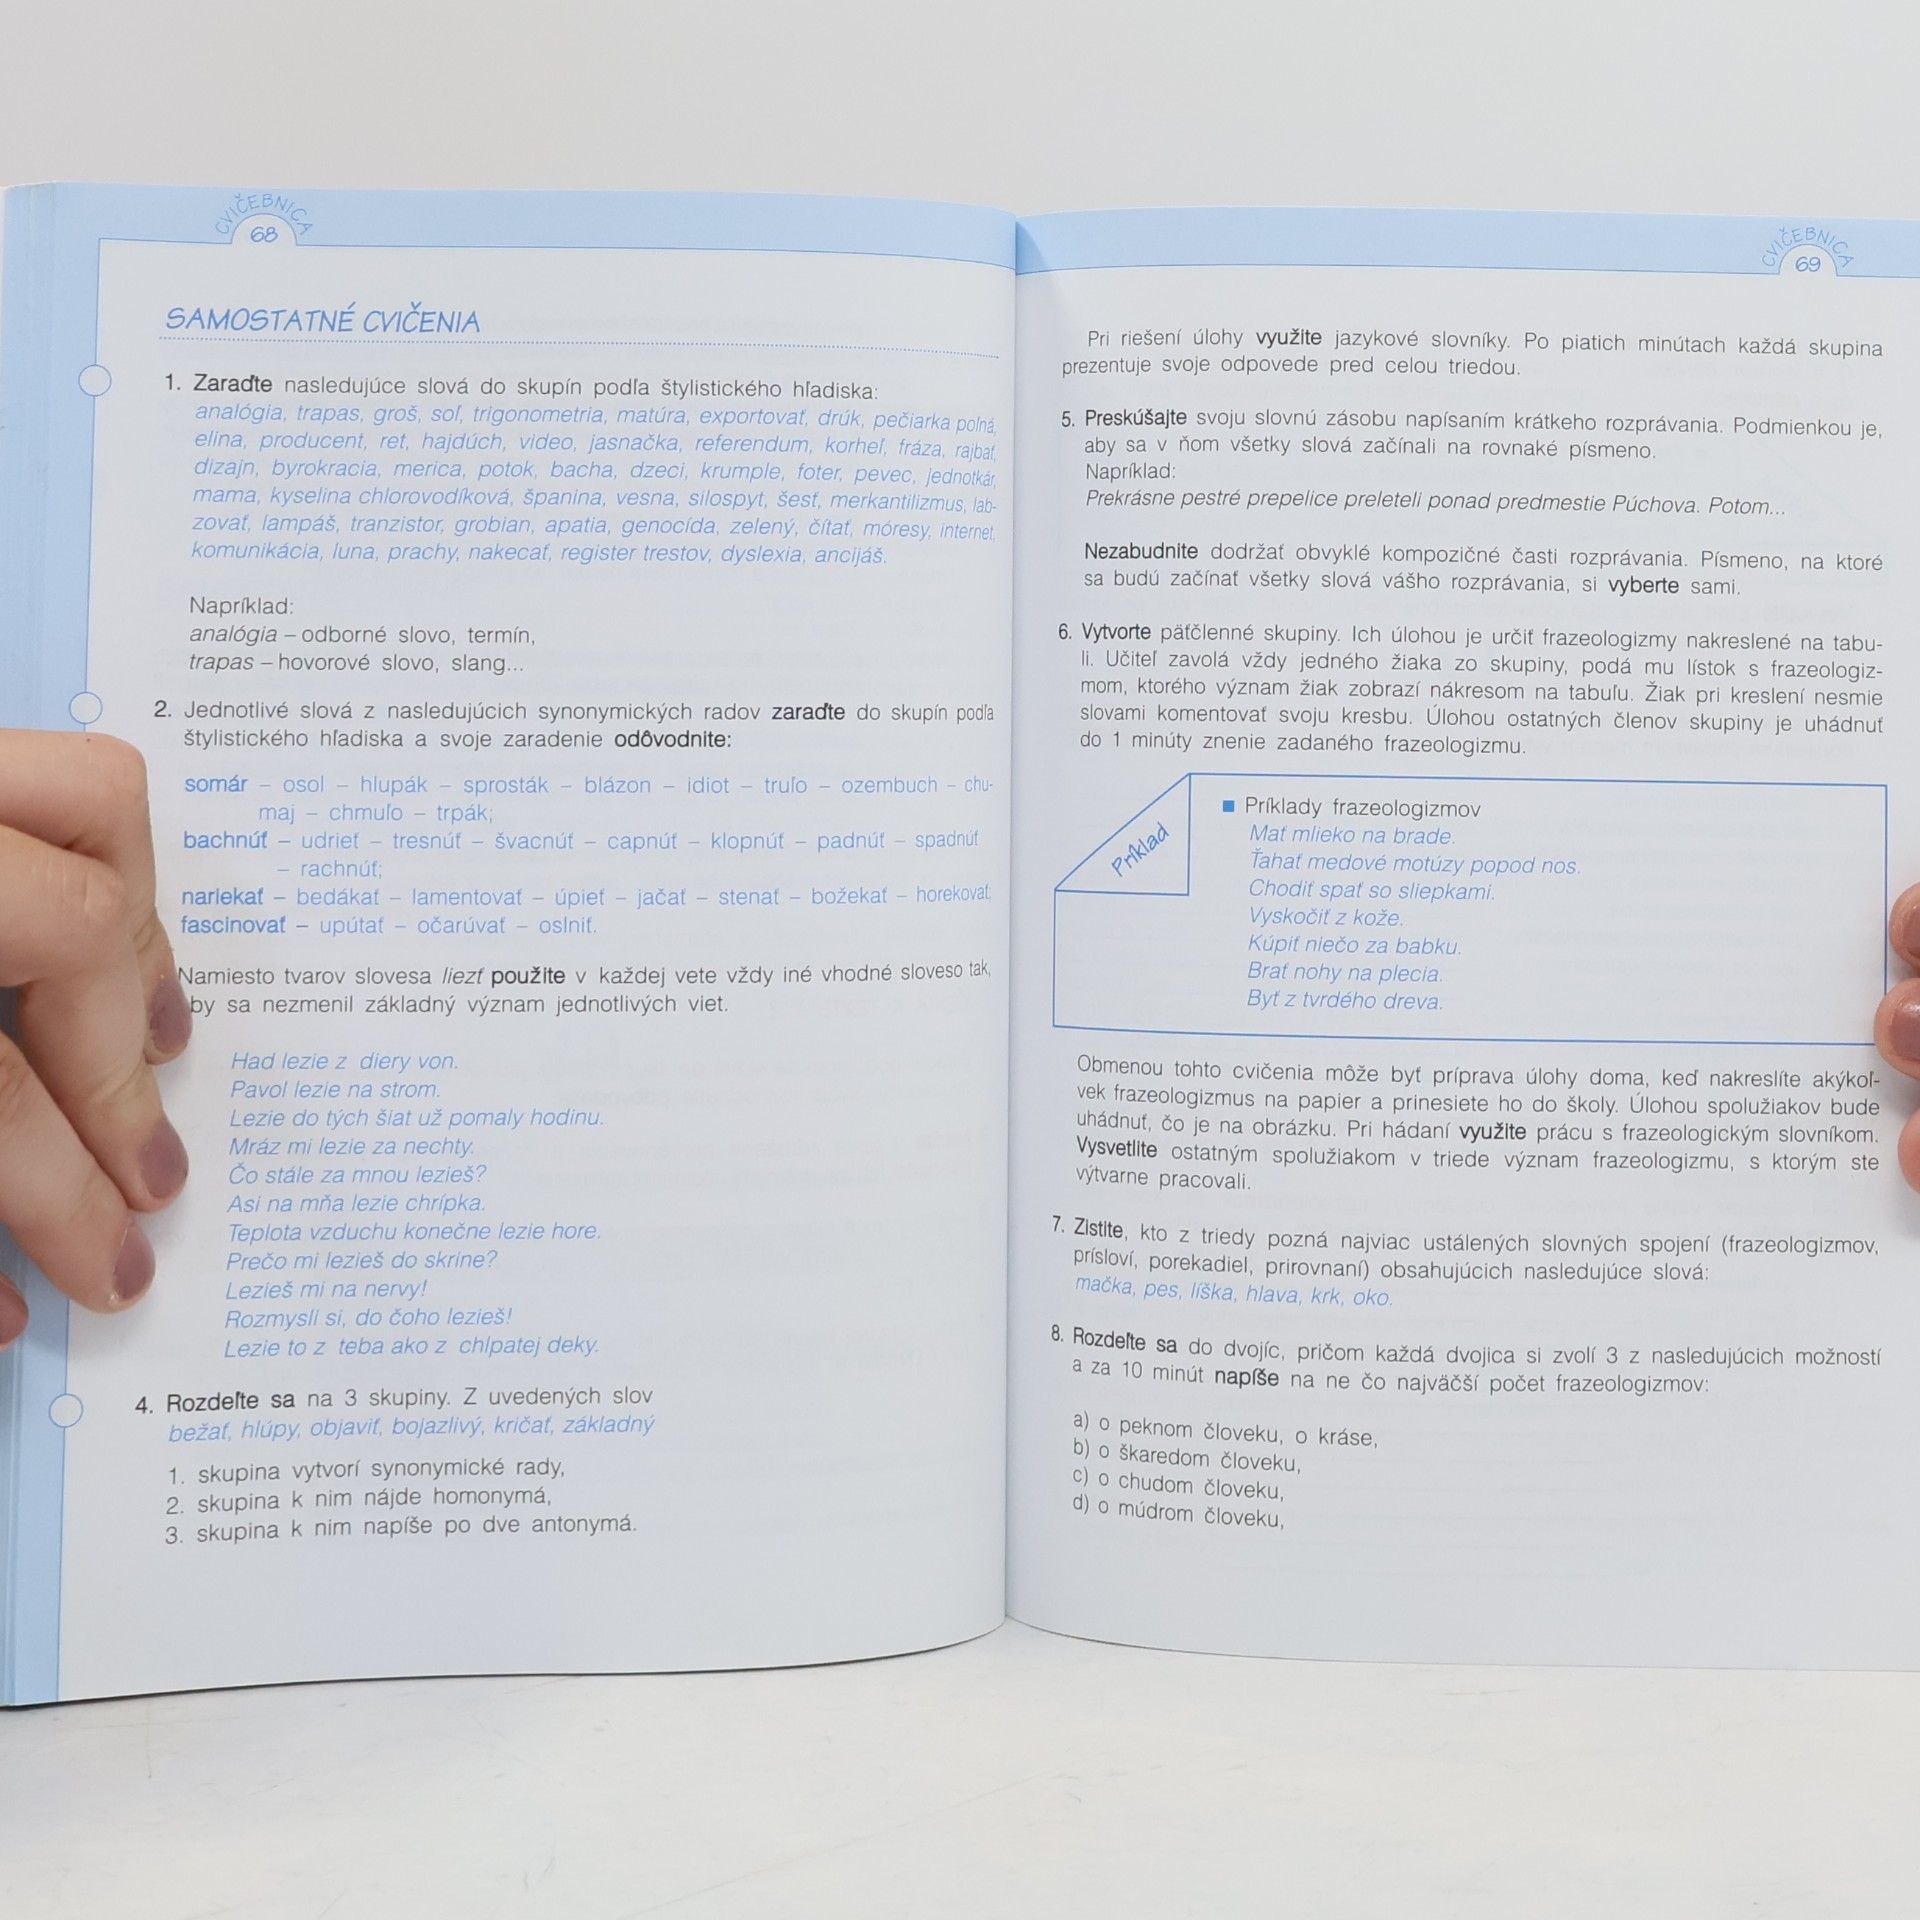 CVIČEBNICA
68
SAMOSTATNÉ CVIČENIA
1. Zaraďte nasledujúce slová do skupín podľa štylistického hľadiska:
analógia, trapas, groš, soľ, trigonometria, matúra, exportovať, drúk, pečiarka poľná,
elina, producent, ret, hajdúch, video, jasnačka, referendum, korheľ, fráza, rajbať,
dizajn, byrokracia, merica, potok, bacha, dzeci, krumple, foter, pevec, jednotkár,
mama, kyselina chlorovodíková, španina, vesna, silospyt, šesť, merkantilizmus, lab-
zovať, lampáš, tranzistor, grobian, apatia, genocída, zelený, čítať, móresy, internet,
komunikácia, luna, prachy, nakecať, register trestov, dyslexia, ancijáš.
Napríklad:
analógia – odborné slovo, termín,
trapas – hovorové slovo, slang...
2. Jednotlivé slová z nasledujúcich synonymických radov zaraďte do skupín podľa
štylistického hľadiska a svoje zaradenie odôvodnite:
somár – osol – hlupák – sprosták – blázon – idiot – truľo – ozembuch – chu-
maj – chmuľo – trpák;
bachnúť – udrieť – tresnúť – švacnúť – capnúť – klopnúť – padnúť – spadnúť
– rachnúť;
nariekať – bedákať – lamentovať – úpieť – jačať – stenať – božekať – horekovať;
fascinovať – upútať – očarúvať – oslniť.
Namiesto tvarov slovesa liezť použite v každej vete vždy iné vhodné sloveso tak,
by sa nezmenil základný význam jednotlivých viet.
Had lezie z diery von.
Pavol lezie na strom.
Lezie do tých šiat už pomaly hodinu.
Mráz mi lezie za nechty.
Čo stále za mnou lezieš?
Asi na mňa lezie chrípka.
Teplota vzduchu konečne lezie hore.
Prečo mi lezieš do skrine?
Lezieš mi na nervy!
Rozmysli si, do čoho lezieš!
Lezie to z teba ako z chlpatej deky.
4. Rozdeľte sa na 3 skupiny. Z uvedených slov
bežať, hlúpy, objaviť, bojazlivý, kričať, základný
1. skupina vytvorí synonymické rady,
2. skupina k nim nájde homonymá,
3. skupina k nim napíše po dve antonymá.
CVIČEBNICA
69
Pri riešení úlohy využite jazykové slovníky. Po piatich minútach každá skupina
prezentuje svoje odpovede pred celou triedou.
5. Preskúšajte svoju slovnú zásobu napísaním krátkeho rozprávania. Podmienkou je,
aby sa v ňom všetky slová začínali na rovnaké písmeno.
Napríklad:
Prekrásne pestré prepelice preleteli ponad predmestie Púchova. Potom...
Nezabudnite dodržať obvyklé kompozičné časti rozprávania. Písmeno, na ktoré
sa budú začínať všetky slová vášho rozprávania, si vyberte sami.
6. Vytvorte päťčlenné skupiny. Ich úlohou je určiť frazeologizmy nakreslené na tabu-
li. Učiteľ zavolá vždy jedného žiaka zo skupiny, podá mu lístok s frazeologiz-
mom, ktorého význam žiak zobrazí nákresom na tabuľu. Žiak pri kreslení nesmie
slovami komentovať svoju kresbu. Úlohou ostatných členov skupiny je uhádnuť
do 1 minúty znenie zadaného frazeologizmu.
Príklad
■ Príklady frazeologizmov
Mať mlieko na brade.
Ťahať medové motúzy popod nos.
Chodiť spať so sliepkami.
Vyskočiť z kože.
Kúpiť niečo za babku.
Brať nohy na plecia.
Byť z tvrdého dreva.
Obmenou tohto cvičenia môže byť príprava úlohy doma, keď nakreslíte akýkoľ-
vek frazeologizmus na papier a prinesiete ho do školy. Úlohou spolužiakov bude
uhádnuť, čo je na obrázku. Pri hádaní využite prácu s frazeologickým slovníkom.
Vysvetlite ostatným spolužiakom v triede význam frazeologizmu, s ktorým ste
výtvarne pracovali.
7. Zistite, kto z triedy pozná najviac ustálených slovných spojení (frazeologizmov,
prísloví, porekadiel, prirovnaní) obsahujúcich nasledujúce slová:
mačka, pes, líška, hlava, krk, oko.
8. Rozdeľte sa do dvojíc, pričom každá dvojica si zvolí 3 z nasledujúcich možností
a za 10 minút napíše na ne čo najväčší počet frazeologizmov:
a) o peknom človeku, o kráse,
b) o škaredom človeku,
c) o chudom človeku,
d) o múdrom človeku,